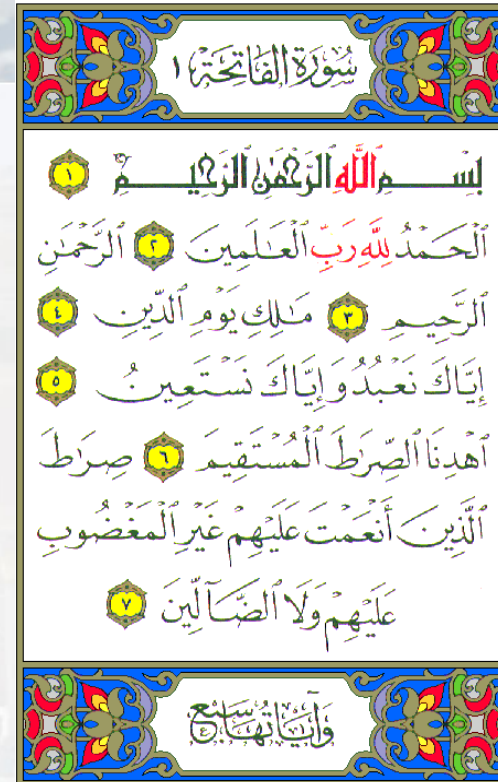 سُورَةُ الفَاتِحَةِ ١
بِسْمِ ٱللَّهِ ٱلرَّحْمَٰنِ ٱلرَّحِيمِ ١
ٱلْحَمْدُ لِلَّهِ رَبِّ ٱلْعَـٰلَمِينَ ٢ ٱلرَّحْمَـٰنِ
ٱلرَّحِيمِ ٣ مَـٰلِكِ يَوْمِ ٱلدِّينِ ٤
إِيَّاكَ نَعْبُدُ وَإِيَّاكَ نَسْتَعِينُ ٥
ٱهْدِنَا ٱلصِّرَٰطَ ٱلْمُسْتَقِيمَ ٦ صِرَٰطَ
ٱلَّذِينَ أَنْعَمْتَ عَلَيْهِمْ غَيْرِ ٱلْمَغْضُوبِ
عَلَيْهِمْ وَلَا ٱلضَّآلِّينَ ٧
وَآيَاتُهَا سَبْعٌ